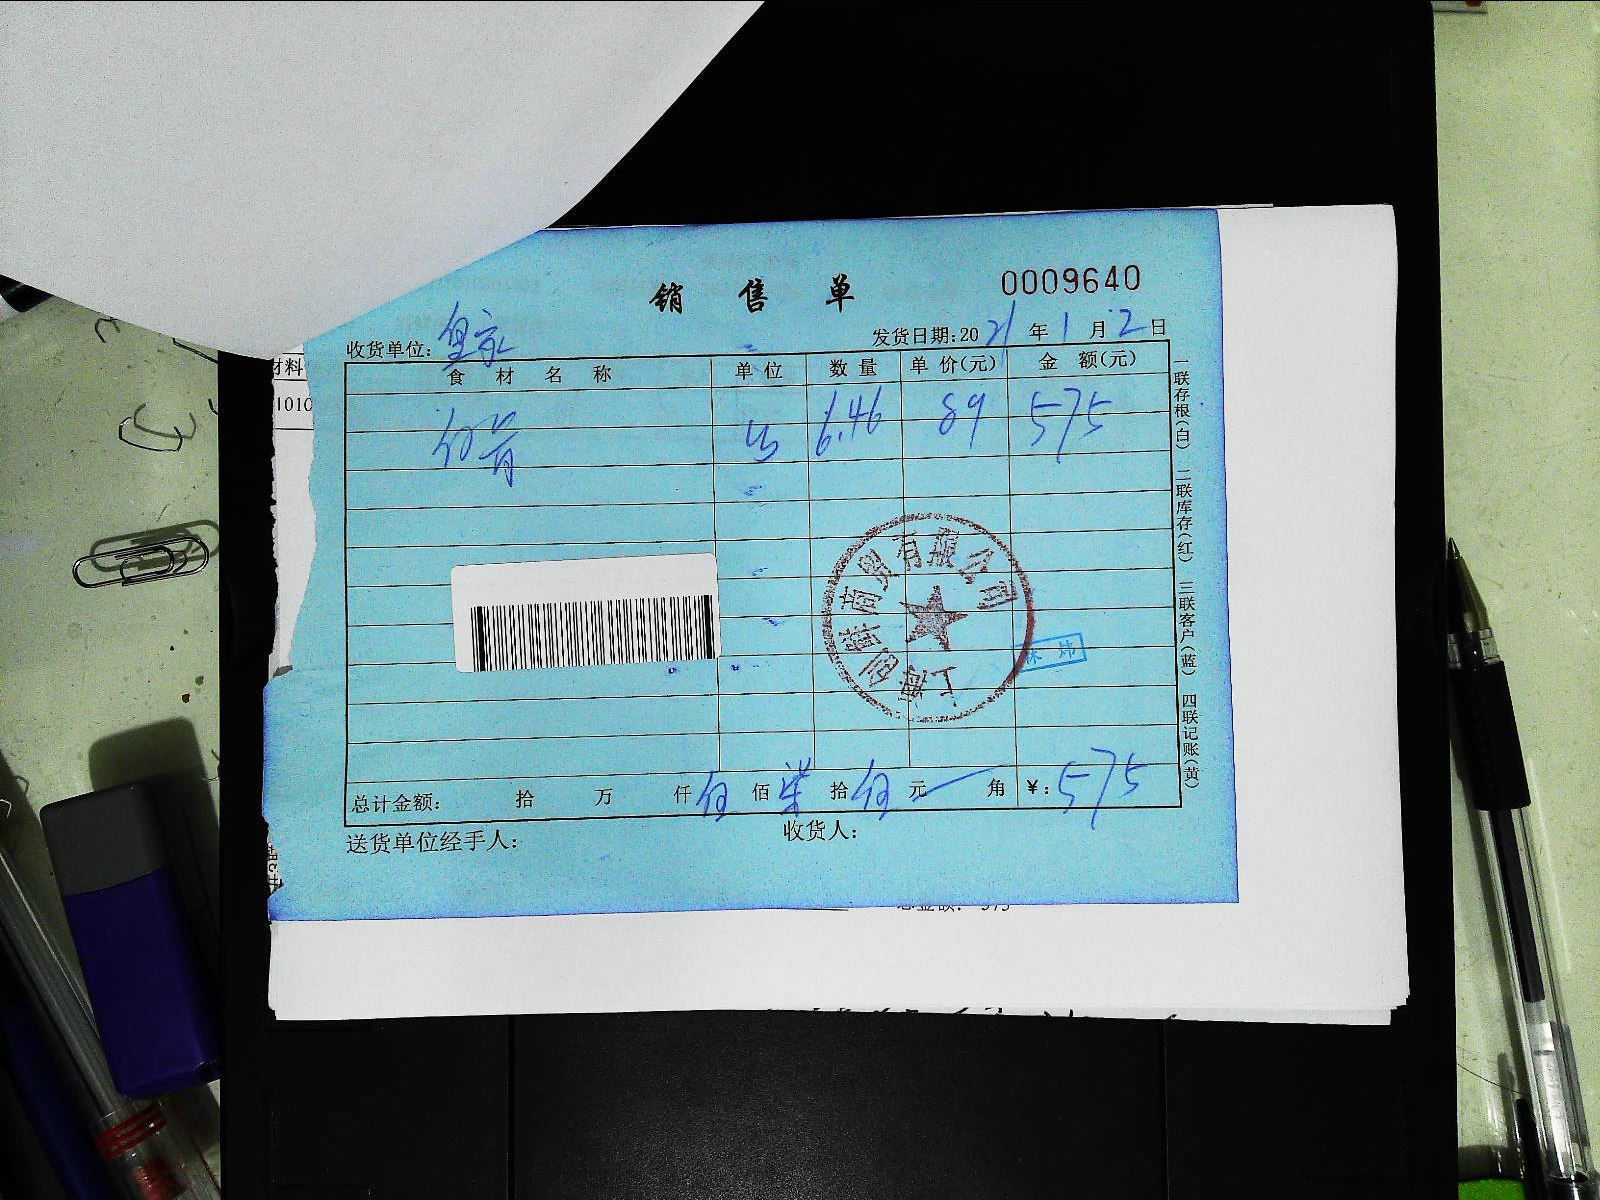 销售单
0009640
收货单位：皇家
发货日期:2021年1月2日
食材名称 单位 数量 单价(元) 金额(元)
6.46 89 575
上海创群商贸有限公司
总计金额： 拾 万 仟伍佰柒拾伍元 角 ￥:575
送货单位经手人： 收货人：
一联存根(白) 二联库存(红) 三联客户(蓝) 四联记账(黄)
材料
1010
总金额： 575